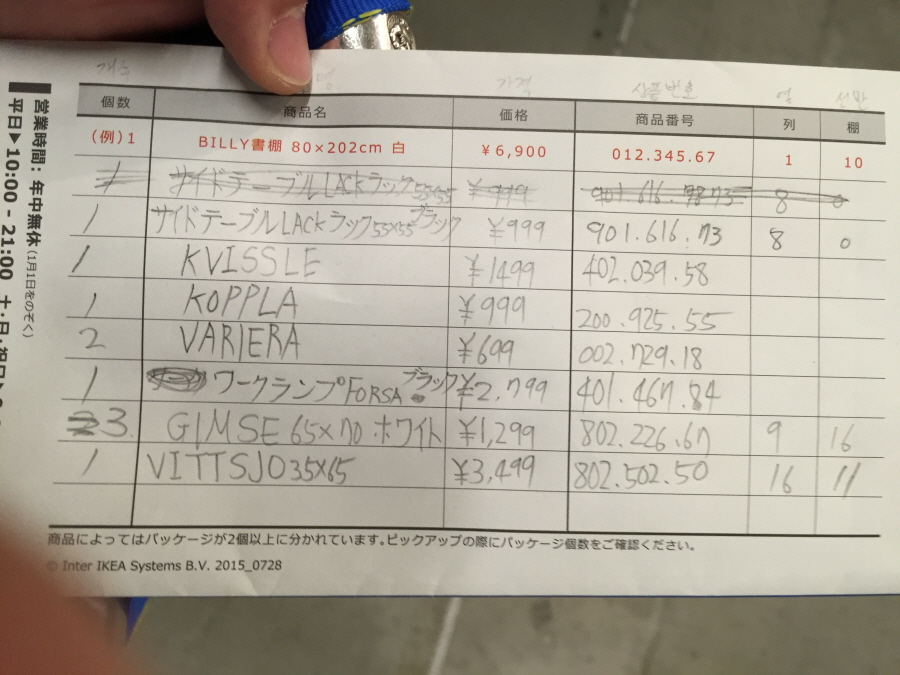 개수 명 가격 상품번호 열 선반
個数 商品名 価格 商品番号 列 棚
(例)1 BILLY書棚 80×202cm 白 ¥6,900 012.345.67 1 10
1 サイドテーブルLACKラック55×55 ¥999 901.616. 73 8 0
1 サイドテーブルLACKラック55×55ブラック ¥999 901.616.73 8 0
1 KVISSLE ¥1499 402.039.58
1 KOPPLA ¥999 200.925.55
2 VARIERA ¥699 002.729.18
1 ワークランプFORSAブラック ¥2,799 401.467.84
3 GIMSE 65×70 ホワイト ¥1,299 802.226.67 9 16
1 VITTSJO35×65 ¥3,499 802.502.50 16 11
商品によってはパッケージが2個以上に分かれています。ピックアップの際にパッケージ個数をご確認ください。
© Inter IKEA Systems B.V. 2015_0728
営業時間：年中無休(1月1日をのぞく)
平日▶10:00 - 21:00 土・日・祝日▶